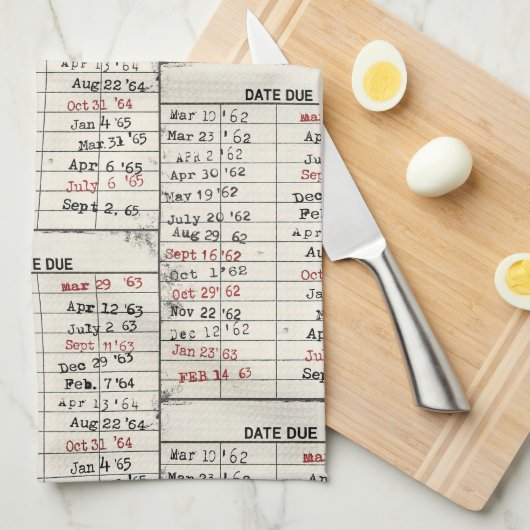 Apr 13 '64
Aug 22 '64
Oct 31 '64
Jan 4 '65
Mar. 31 '65
Apr 6 '65
July 6 '65
Sept 2, 65
E DUE
Mar 29 '63
Apr 12 '63
July 2 63
Sept 11 '63
Dec 29 '63
Feb. 7 '64
Apr 13 '64
Aug 22 '64
Oct 31 '64
Jan 4 '65
DATE DUE
Mar 19 '62
Mar 23 '62
APR 2 '62
Apr 30 '62
May 19 '62
July 20 '62
Aug 29 62
Sept 16 '62
Oct 1 '62
Oct 29 '62
Nov 22 '62
Dec 12 '62
Jan 23 '63
FEB 14 63
Mar
Ap
Ju
Sep
Dec
Feb
Apr
Au
Oct
Ja
Ma
Ap
Ju
Sep
DATE DUE
Mar 19 '62
Mar 23 '62
Mar
Ap